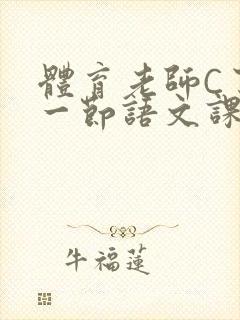 體育老師C了
一節語文課
牛福蓮